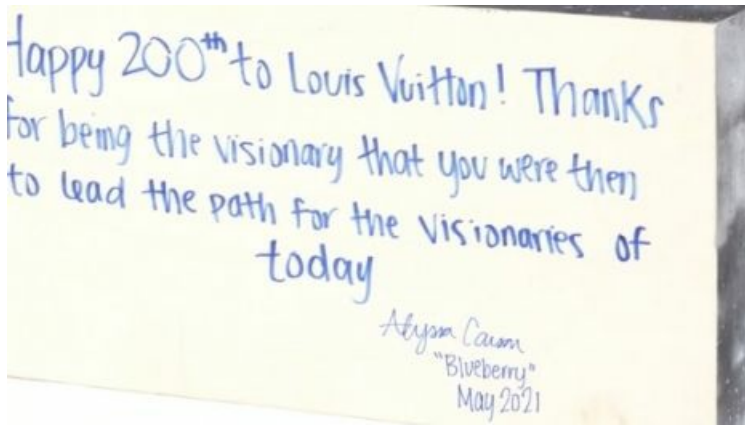 Happy 200th to Louis Vuitton! Thanks
for being the visionary that you were then
to lead the path for the visionaries of
today
Alyssa Carson
"Blueberry"
May 2021